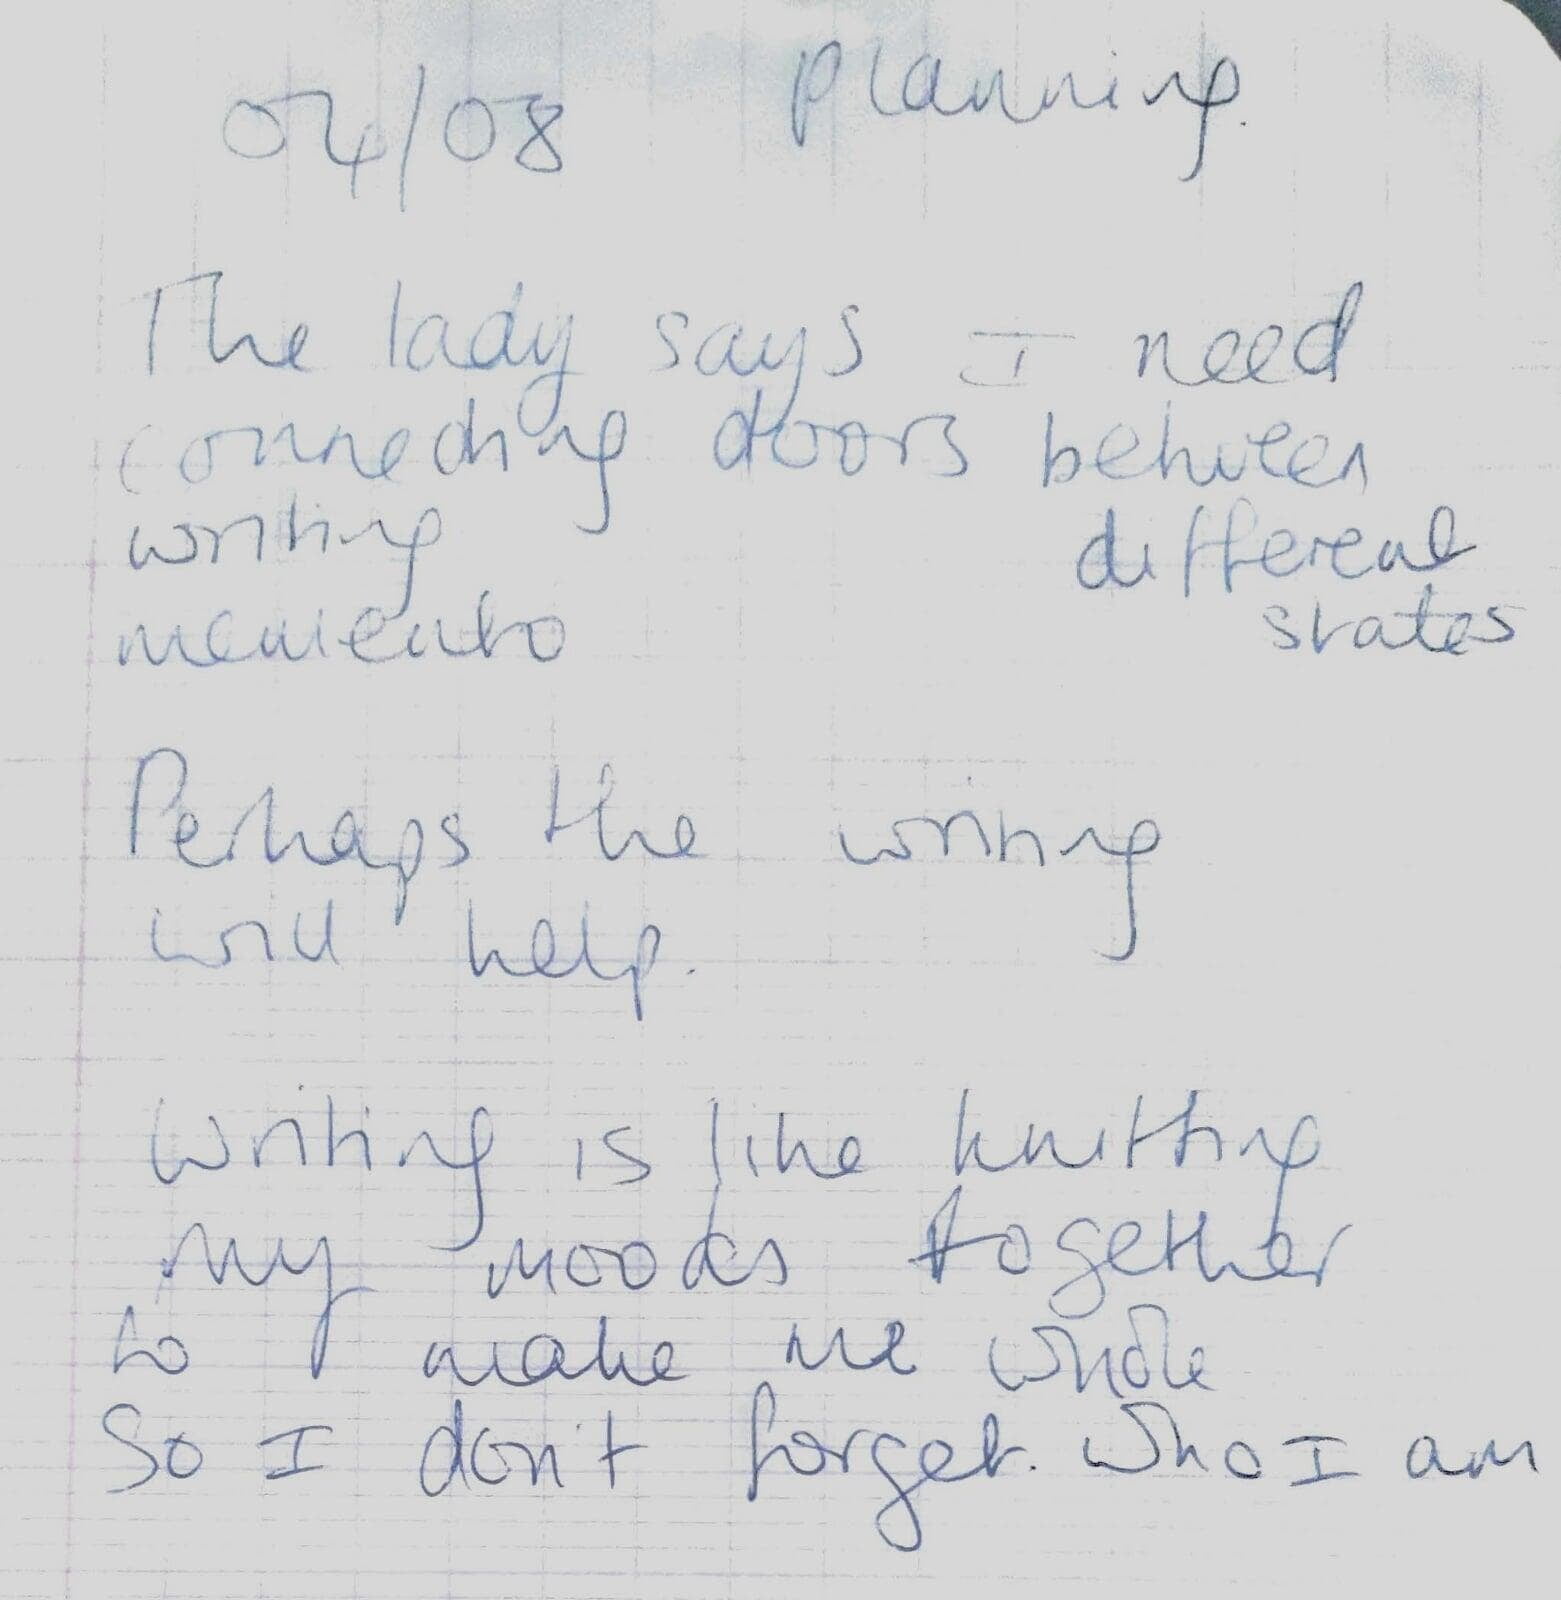 04/08 Planning.
The lady says I need
connecting doors between
writing different
memento states
Perhaps the writing
will help.
Writing is like knitting
my moods together
to make me whole
So I don't forget. Who I am